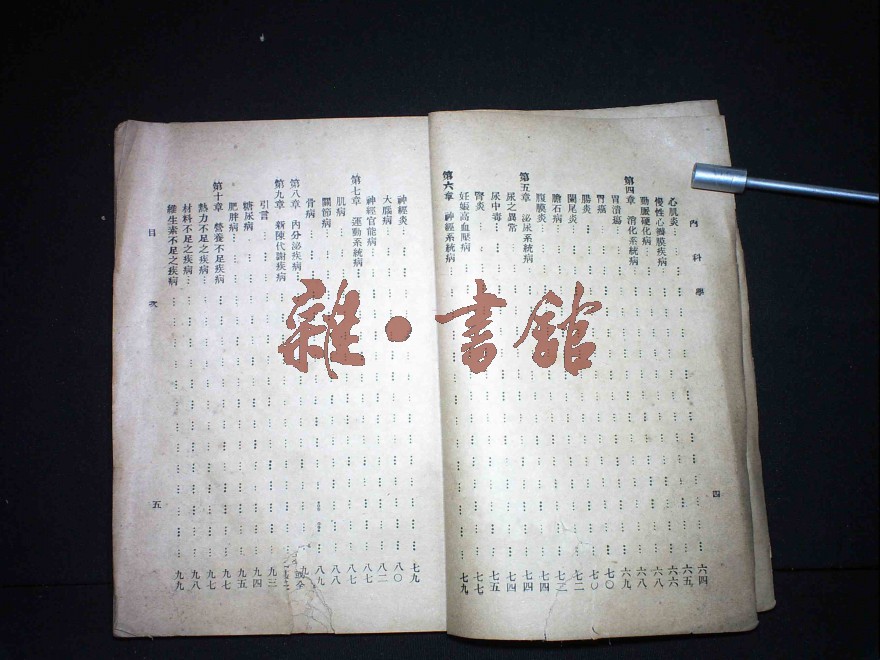 內科學
心肌炎 六四
慢性心瓣膜疾病 六五
動脈硬化病 六六
第四章 消化系統病 六八
胃潰瘍 六九
胃癌 七〇
腸炎 七〇
闌尾炎 七二
膽石病
腹膜炎 七四
第五章 泌尿系統病 七四
尿之異常 七四
尿中毒 七五
腎炎 七七
妊娠高血壓病
第六章 神經系統病 七九
四
神經炎 七九
大腦病 八〇
神經官能病 八二
第七章 運動系統病 八七
肌病 八七
關節病 八八
骨病 八九
第八章 內分泌疾病
第九章 新陳代謝疾病
引言 九三
糖尿病 九四
肥胖病 九五
第十章 營養不足疾病 九七
熱力不足之疾病 九七
材料不足之疾病 九八
維生素不足之疾病 九九
目次
五
雜·書館